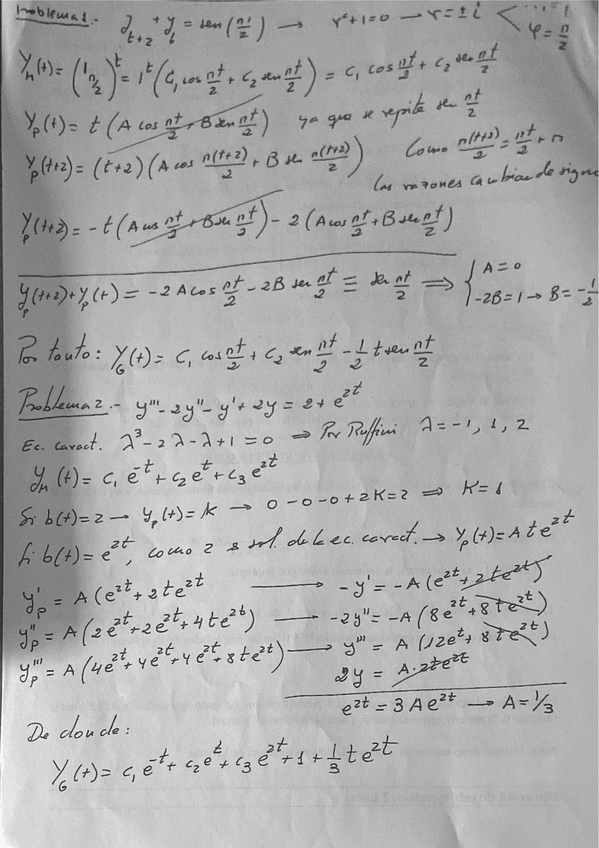 Problema 1.- y_{t+2} + y_t = sen(πt/2) → r²+1=0 → r = ± i < φ = π/2
Y_h(t) = (1_{π/2})^t = 1^t (C_1 cos πt/2 + C_2 sen πt/2) = C_1 cos πt/2 + C_2 sen πt/2
Y_p(t) = t (A cos πt/2 + B sen πt/2) ya que se repite sen πt/2
Y_p(t+2) = (t+2) (A cos π(t+2)/2 + B sen π(t+2)/2) Como π(t+2)/2 = πt/2 + π
las razones cambian de signo
Y_p(t+2) = -t (A cos πt/2 + B sen πt/2) - 2 (A cos πt/2 + B sen πt/2)
Y_p(t+2) + Y_p(t) = -2A cos πt/2 - 2B sen πt/2 ≡ sen πt/2 ⟹ { A = 0
-2B = 1 → B = -1/2
Por tanto: Y_G(t) = C_1 cos πt/2 + C_2 sen πt/2 - 1/2 t sen πt/2
Problema 2.- y''' - 2y'' - y' + 2y = 2 + e^{2t}
Ec. caract. λ³ - 2λ - λ + 1 = 0 ⟹ Por Ruffini λ = -1, 1, 2
Y_h(t) = C_1 e^{-t} + C_2 e^t + C_3 e^{2t}
Si b(t) = 2 → Y_p(t) = K → 0 - 0 - 0 + 2K = 2 ⟹ K = 1
Si b(t) = e^{2t}, como 2 es sol. de la ec. caract. → Y_p(t) = A t e^{2t}
y'_p = A (e^{2t} + 2t e^{2t}) → -y' = -A (e^{2t} + 2t e^{2t})
y''_p = A (2e^{2t} + 2e^{2t} + 4t e^{2t}) → -2y'' = -A (8e^{2t} + 8t e^{2t})
y'''_p = A (4e^{2t} + 4e^{2t} + 4e^{2t} + 8t e^{2t}) → y''' = A (12e^{2t} + 8t e^{2t})
2y = A·2t e^{2t}
e^{2t} = 3A e^{2t} → A = 1/3
De donde:
Y_G(t) = C_1 e^{-t} + C_2 e^t + C_3 e^{2t} + 1 + 1/3 t e^{2t}